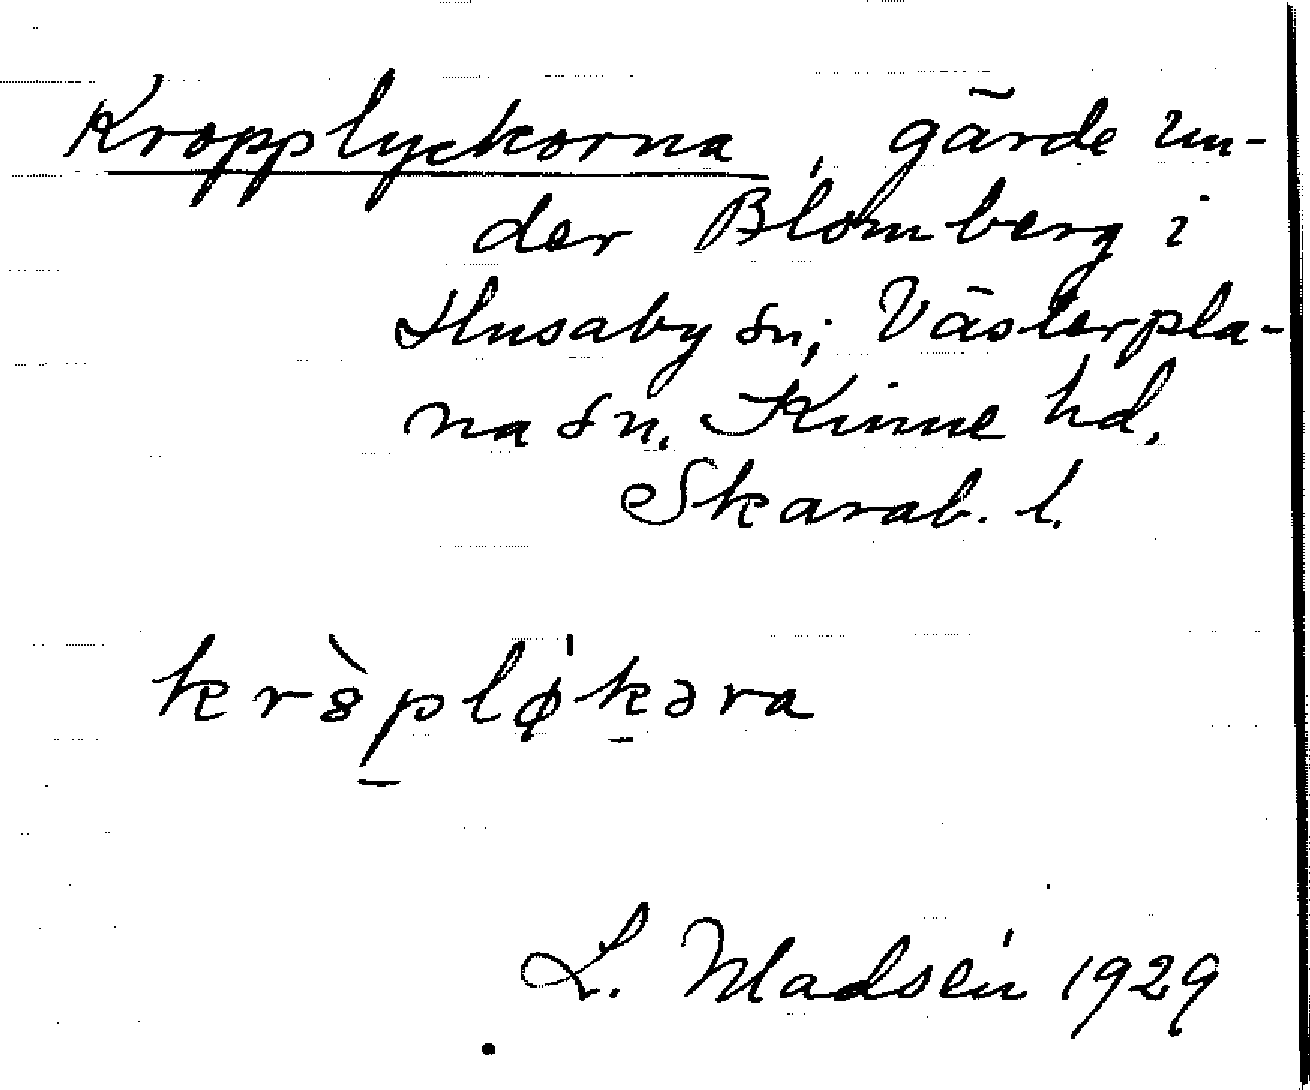 Kropplyckorna, gärde un-
der Blomberg i
Husaby sn; Västerpla-
na sn. Kinne hd.
Skarab. l.
krȣ̀pløkəra
L. Madsén 1929